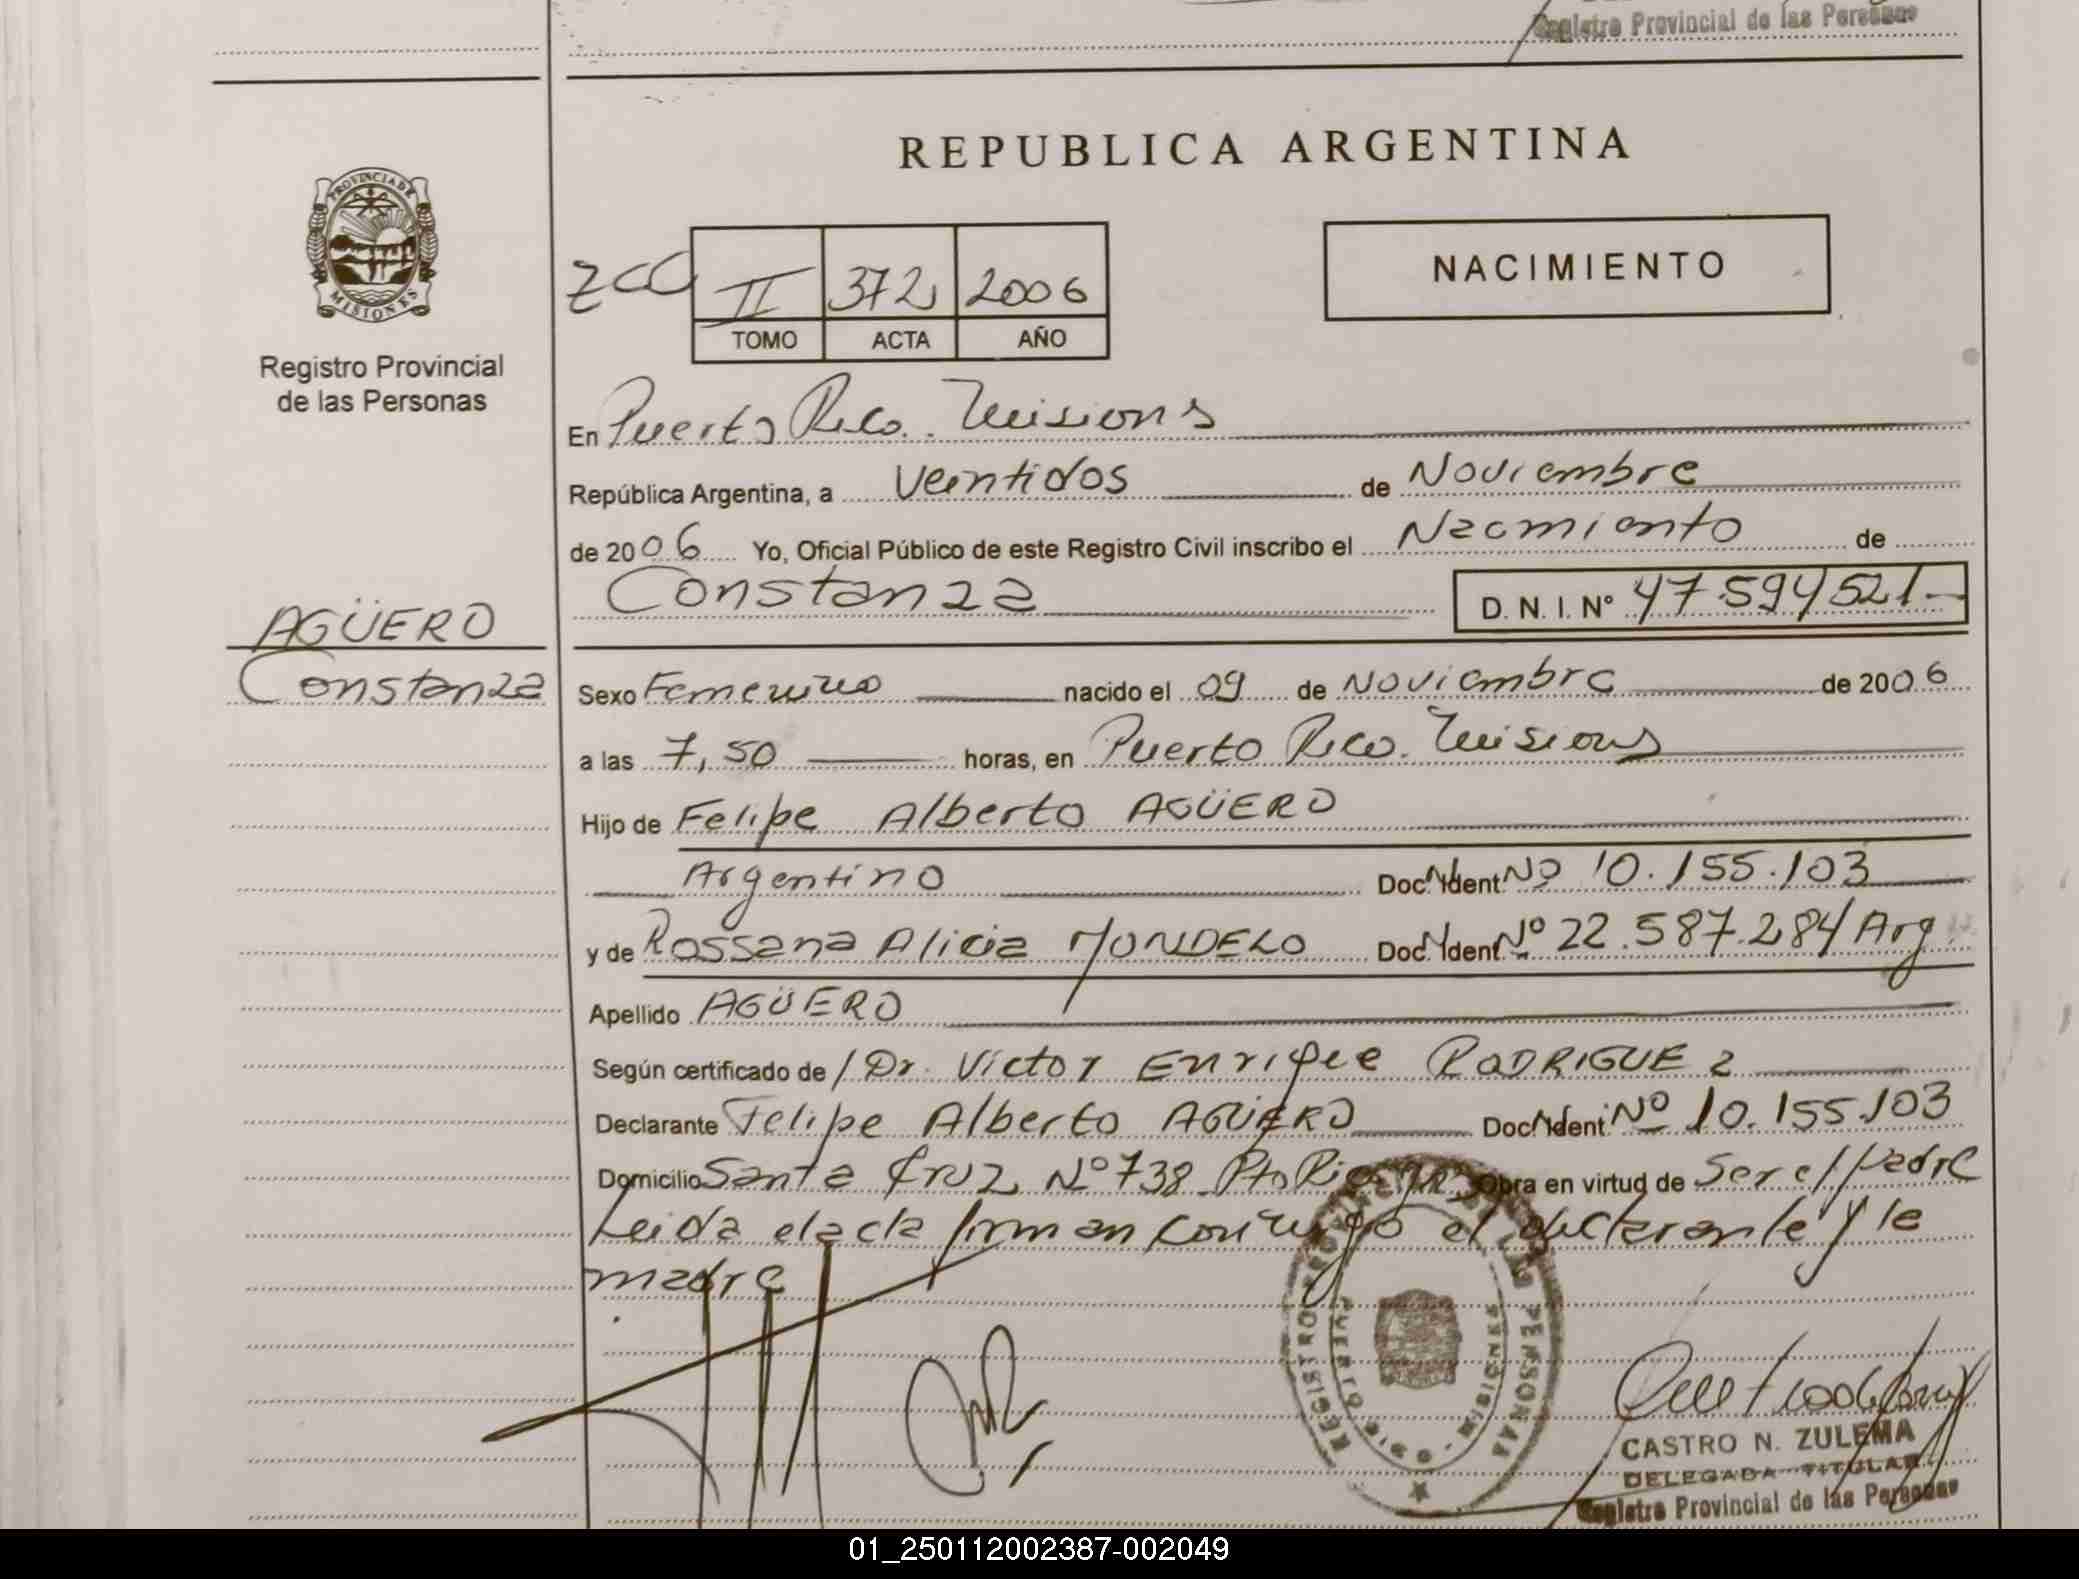 Registro Provincial de las Personas
REPUBLICA ARGENTINA
PROVINCIA DE
MISIONES
Registro Provincial
de las Personas
II 372 2006
TOMO ACTA AÑO
NACIMIENTO
En Puerto Rico. Misiones
República Argentina, a Veintidos de Noviembre
de 2006 Yo, Oficial Público de este Registro Civil inscribo el Nacimiento de
Constanza D. N. I. Nº 47.594521-
AGÜERO
Constanza
Sexo Femenino nacido el 09 de Noviembre de 2006
a las 7,50 horas, en Puerto Rico. Misiones
Hijo de Felipe Alberto AGÜERO
Argentino Doc. Ident. Nº 10.155.103
y de Rossana Alicia MONDELO Doc. Ident. Nº 22.587.284/Arg.
Apellido AGÜERO
Según certificado de / Dr. Victor Enrique RODRIGUEZ
Declarante Felipe Alberto AGÜERO Doc. Ident. Nº 10.155.103
Domicilio Santa Cruz Nº 738 Pto Rico Obra en virtud de Ser el padre
Leida el acta firman conmigo el declarante y la
madre
REGISTRO PROVINCIAL DE LAS PERSONAS
PUERTO RICO - MISIONES
CASTRO N. ZULEMA
DELEGADA TITULAR
Registro Provincial de las Personas
01_250112002387-002049